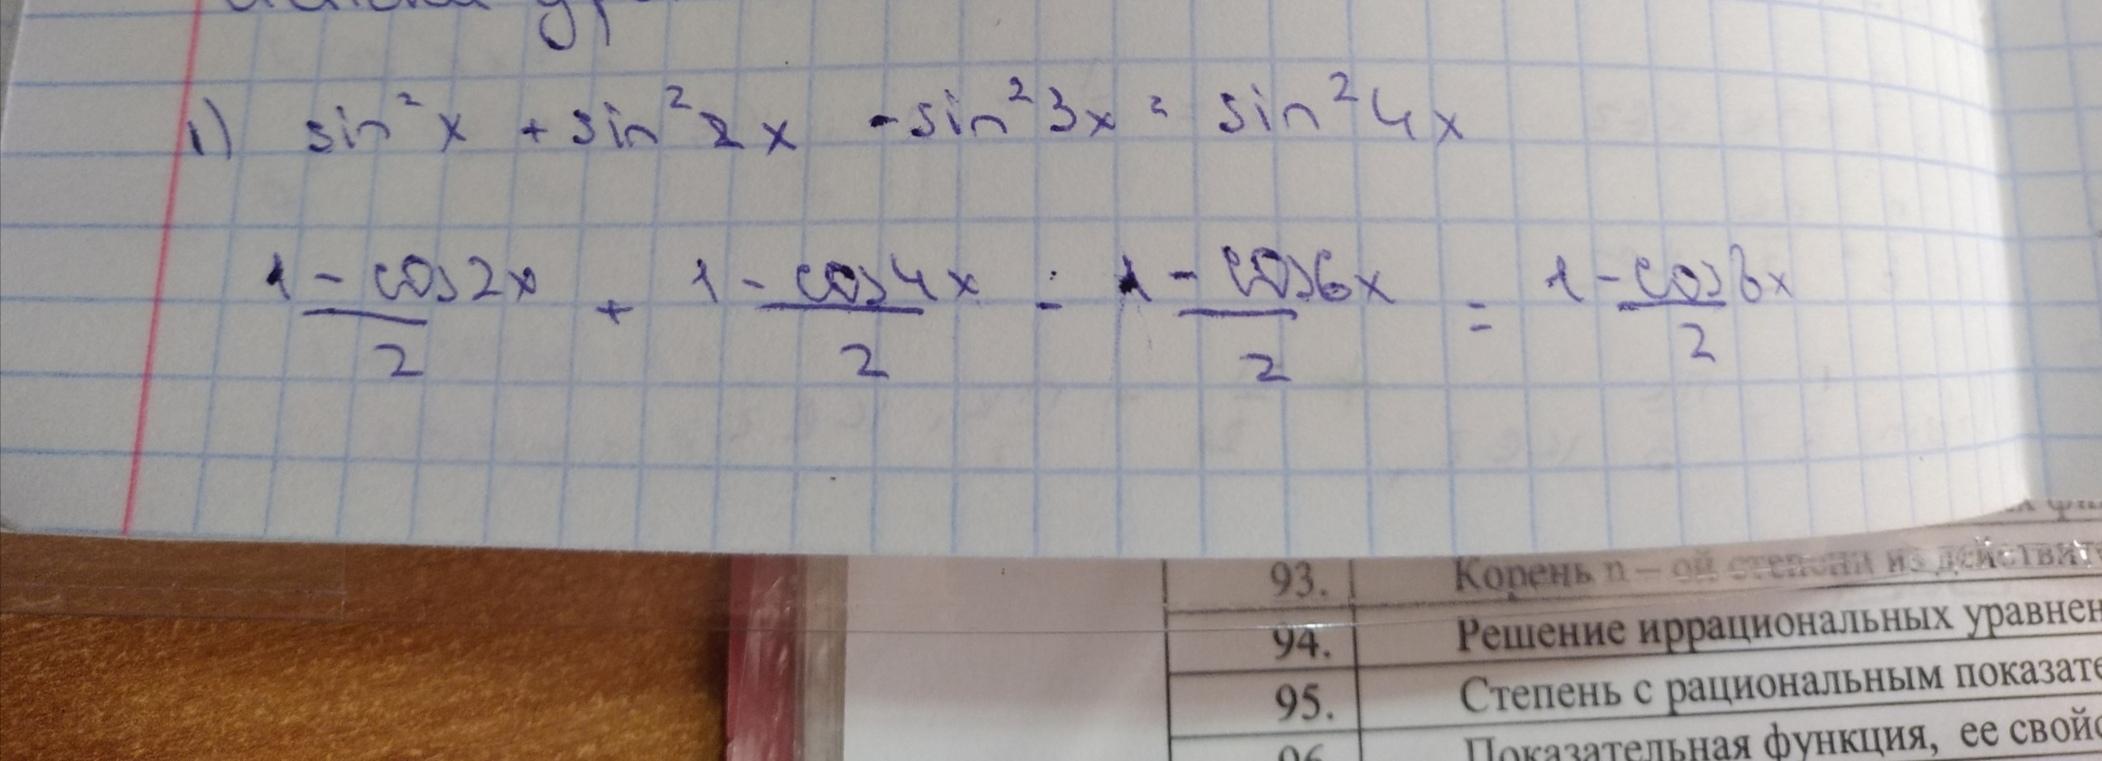 1) sin²x + sin²2x - sin²3x = sin²4x
1 - cos2x / 2 + 1 - cos4x / 2 - 1 - cos6x / 2 = 1 - cos8x / 2
93. Корень n – ой степени из действит
94. Решение иррациональных уравнен
95. Степень с рациональным показате
96 Показательная функция, ее свойс